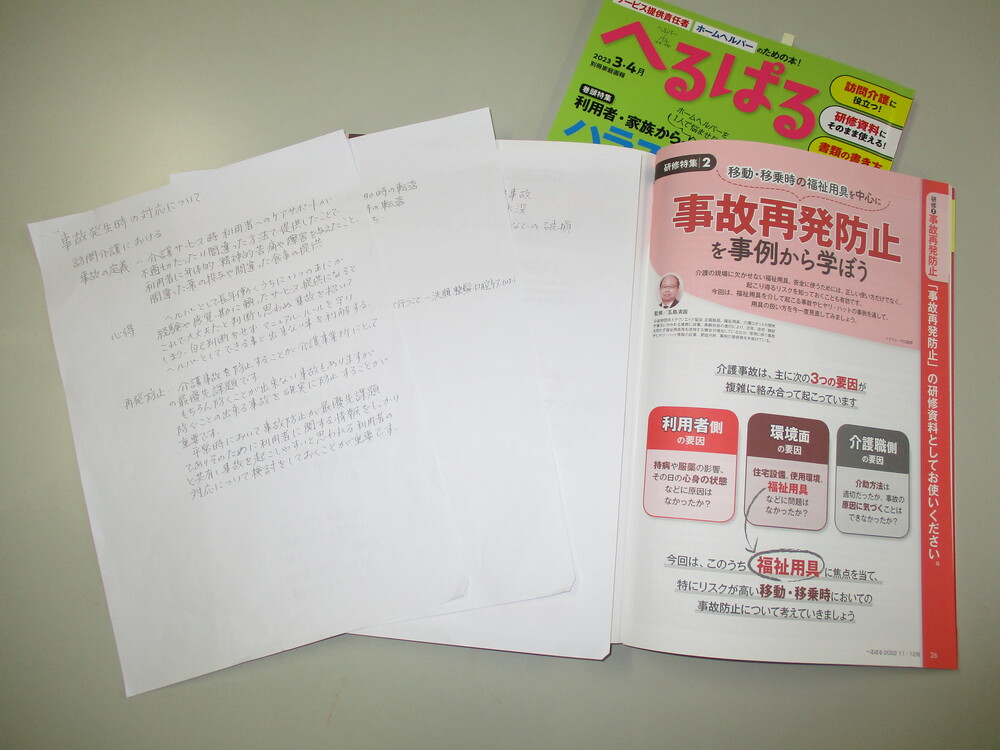 事故発生時の対応について
訪問介護における
事故の定義 ー 介護サービス時 利用者へのケアサポートが
不適切だったり間違った方法で提供したことで、
利用者に身体的、精神的苦痛や障害を与えたこと、
間違った薬の投与や間違った食事の提供
心得
ヘルパーとして長年働くうちにいつのまにか
経験や感覚、勘に頼ったサービス提供になると
これで大丈夫だと判断し思わぬ事故を招いて
しまう。自己判断をせずマニュアル、ルールを守りる。
ヘルパーとしてできる事と出来ない事を判断する。
再発防止 ー 介護事故を防止することが介護事業所にとって
の最優先課題です。
もちろん防ぐことが出来ない事故もありますが
防ぐことの出来る事故を確実に防止することが
重要です。
平常時において事故防止が最優先課題
であり、そのために利用者に関する情報をしっかり
と共有し事故を起こしやすいと思われる利用者の
対応について検討をしておくことが重要です
時の転落
の転落
ち
行うこと
洗顔、整髪、
事故
破損
サービス提供責任者
ホームヘルパー
のための本!
へるぱる
2023 3・4月
別冊家庭画報
訪問介護に
役立つ!
研修資料に
そのまま使える!
書類の書き方
巻頭特集
利用者・家族から
ホームヘルパーを
1人で悩ませない
ハラス
研修特集 2
移動・移乗時の福祉用具を中心に
事故再発防止
を事例から学ぼう
介護の現場に欠かせない福祉用具。安全に使うためには、正しい使い方だけでなく、
起こり得るリスクを知っておくことも有効です。
今回は、福祉用具を介して起こる事故やヒヤリ・ハットの事例を通して、
用具の扱い方を今一度見直してみましょう。
監修/五島清国
介護事故は、主に次の3つの要因が
複雑に絡み合って起こっています
利用者側
の要因
持病や服薬の影響、
その日の心身の状態
などに原因は
なかったか?
環境面
の要因
住宅設備、使用環境、
福祉用具
などに問題は
なかったか?
介護職側
の要因
介助方法は
適切だったか、事故の
原因に気づくことは
できなかったか?
今回は、このうち福祉用具に焦点を当て、
特にリスクが高い移動・移乗時においての
事故防止について考えていきましょう
へるぱる 2022 11・12月
26
研修2 事故再発防止
「事故再発防止」の研修資料としてお使いください。